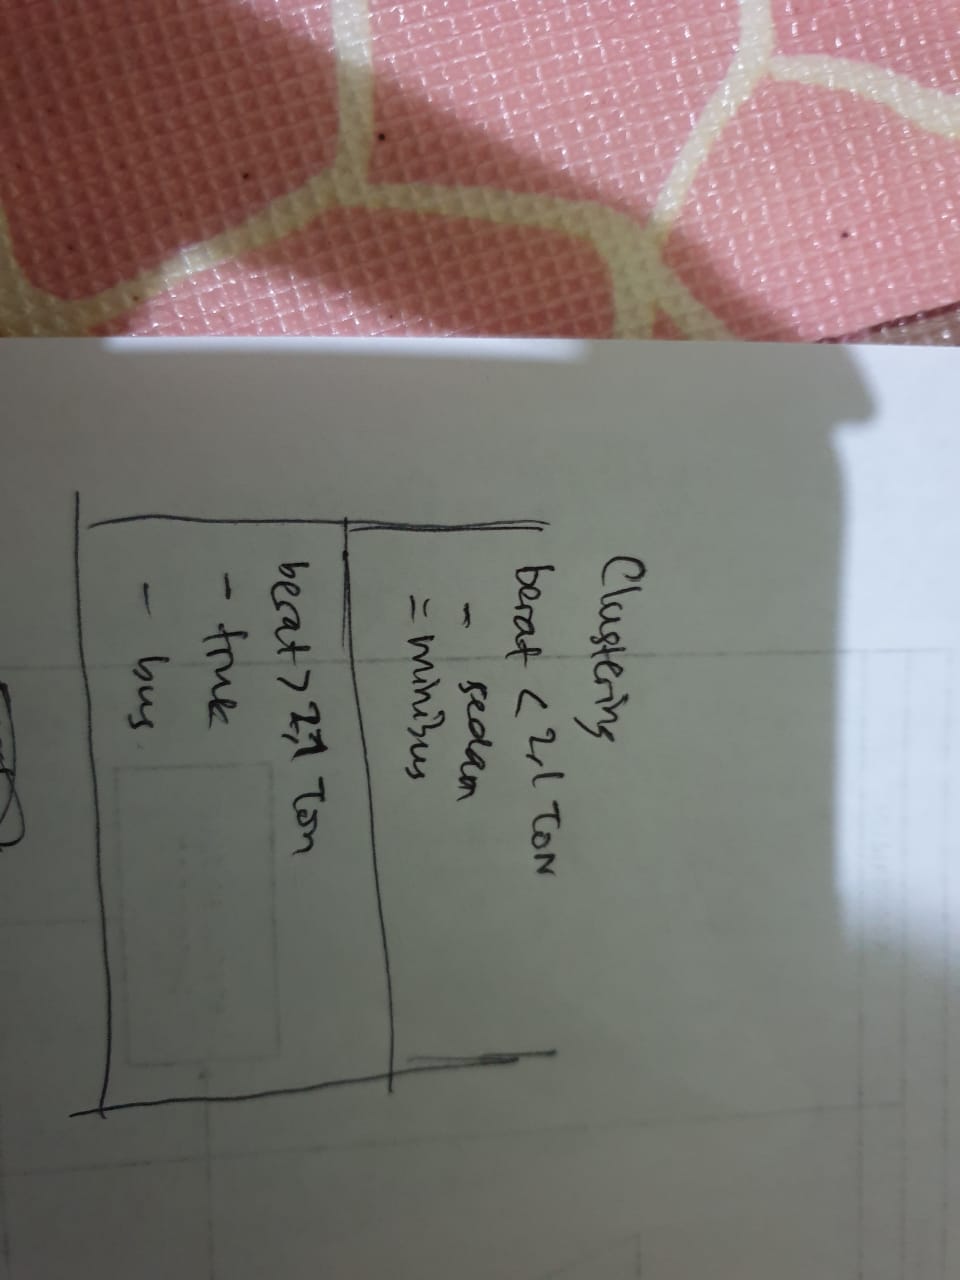 Clustering
berat < 2,1 TON
- sedan
= minibus
berat > 2,1 Ton
- truk
- bus